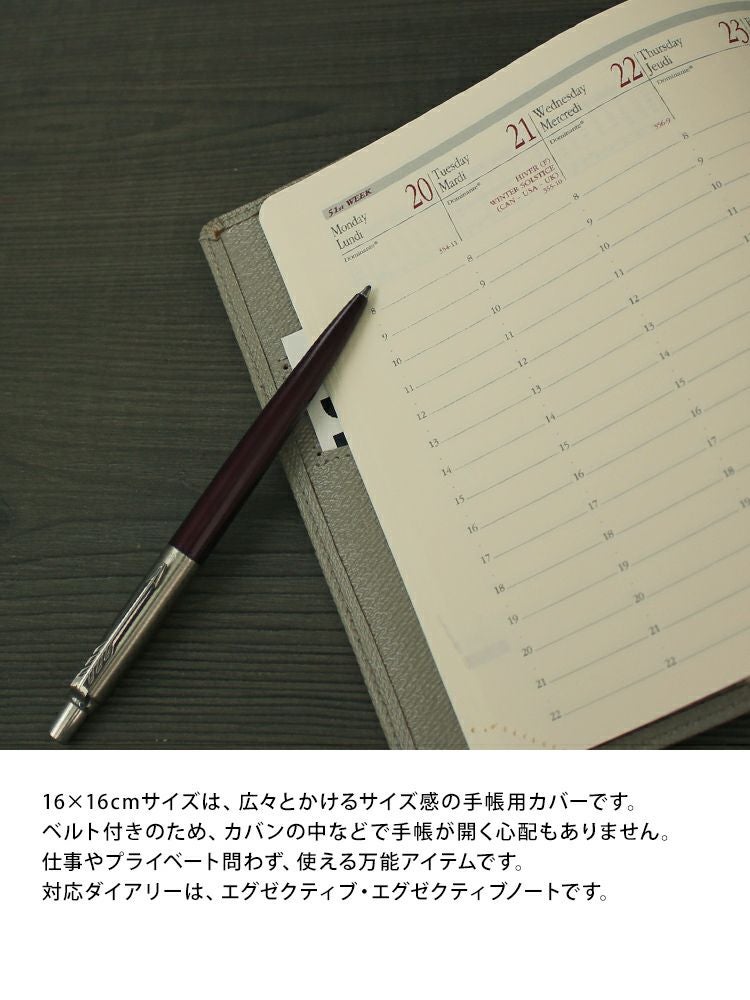 51st WEEK
20
Monday
Lundi
Dominante®
21
Tuesday
Mardi
Dominante®
HIVER (F)
WINTER SOLSTICE
(CAN - USA - UK)
22
Wednesday
Mercredi
Dominante®
23
Thursday
Jeudi
Dominante®
354-11
355-10
356-9
8 8 8 8
9 9 9 9
10 10 10 10
11 11 11 11
12 12 12 12
13 13 13
14 14 14
15 15 15
16 16 16
17 17 17
18 18 18
19 19 19
20 20 20
21 21
22 22
16×16cmサイズは、広々とかけるサイズ感の手帳用カバーです。
ベルト付きのため、カバンの中などで手帳が開く心配もありません。
仕事やプライベート問わず、使える万能アイテムです。
対応ダイアリーは、エグゼクティブ・エグゼクティブノートです。